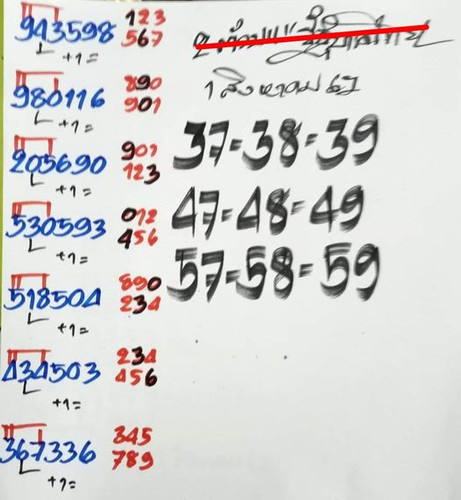 943598 123
567
+1=
1 สิงหาคม 67
980116 890
901
+1=
37-38-39
205690 901
123
+1=
47-48-49
530593 012
456
+1=
57-58-59
518504 890
234
+1=
434503 234
456
+1=
367336 345
789
+1=